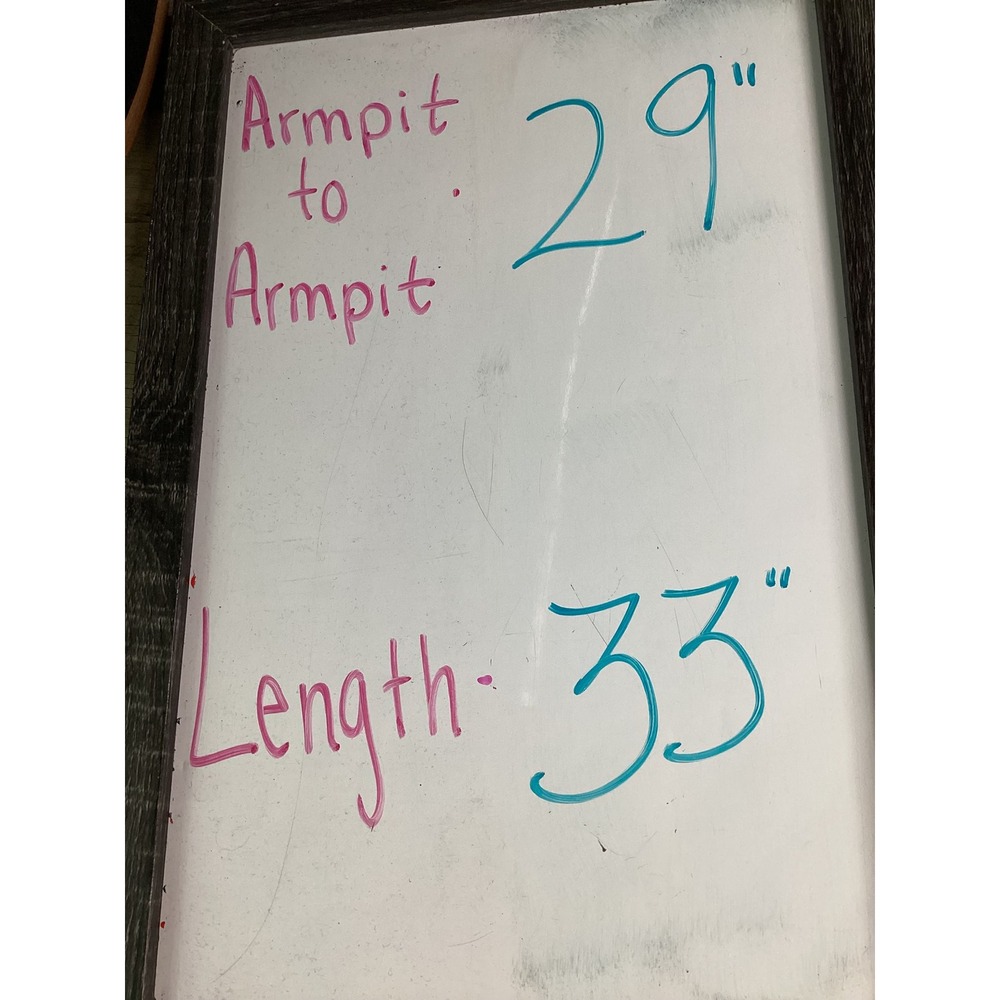 Armpit 29"
to .
Armpit
Length. 33"